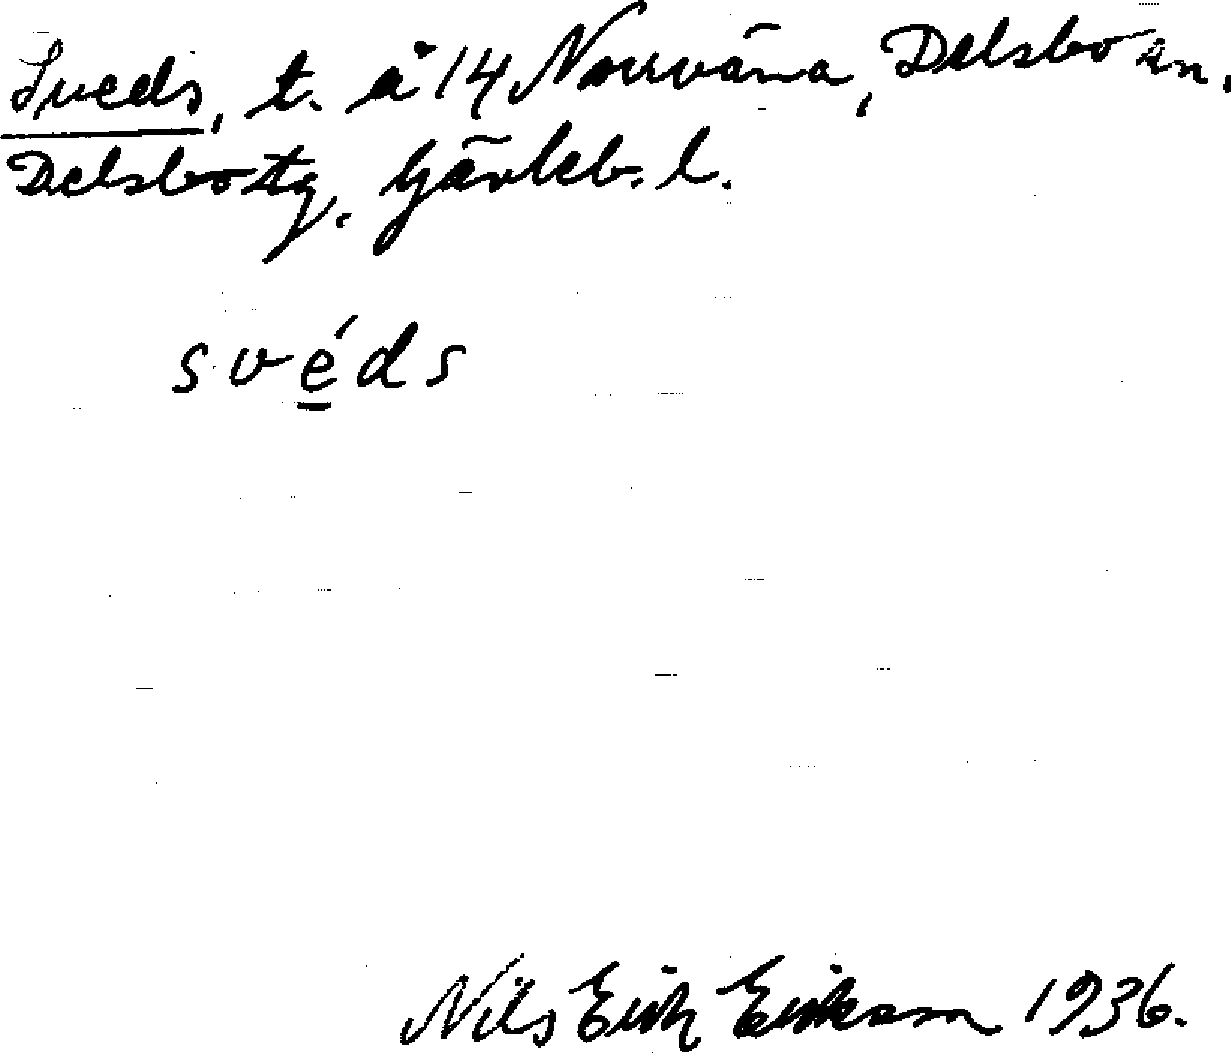 Sveds, t. å 14 Norrväna, Delsbo sn,
Delsbo tg. Gävleb. l.
svéds
Nils Erik Erikson 1936.